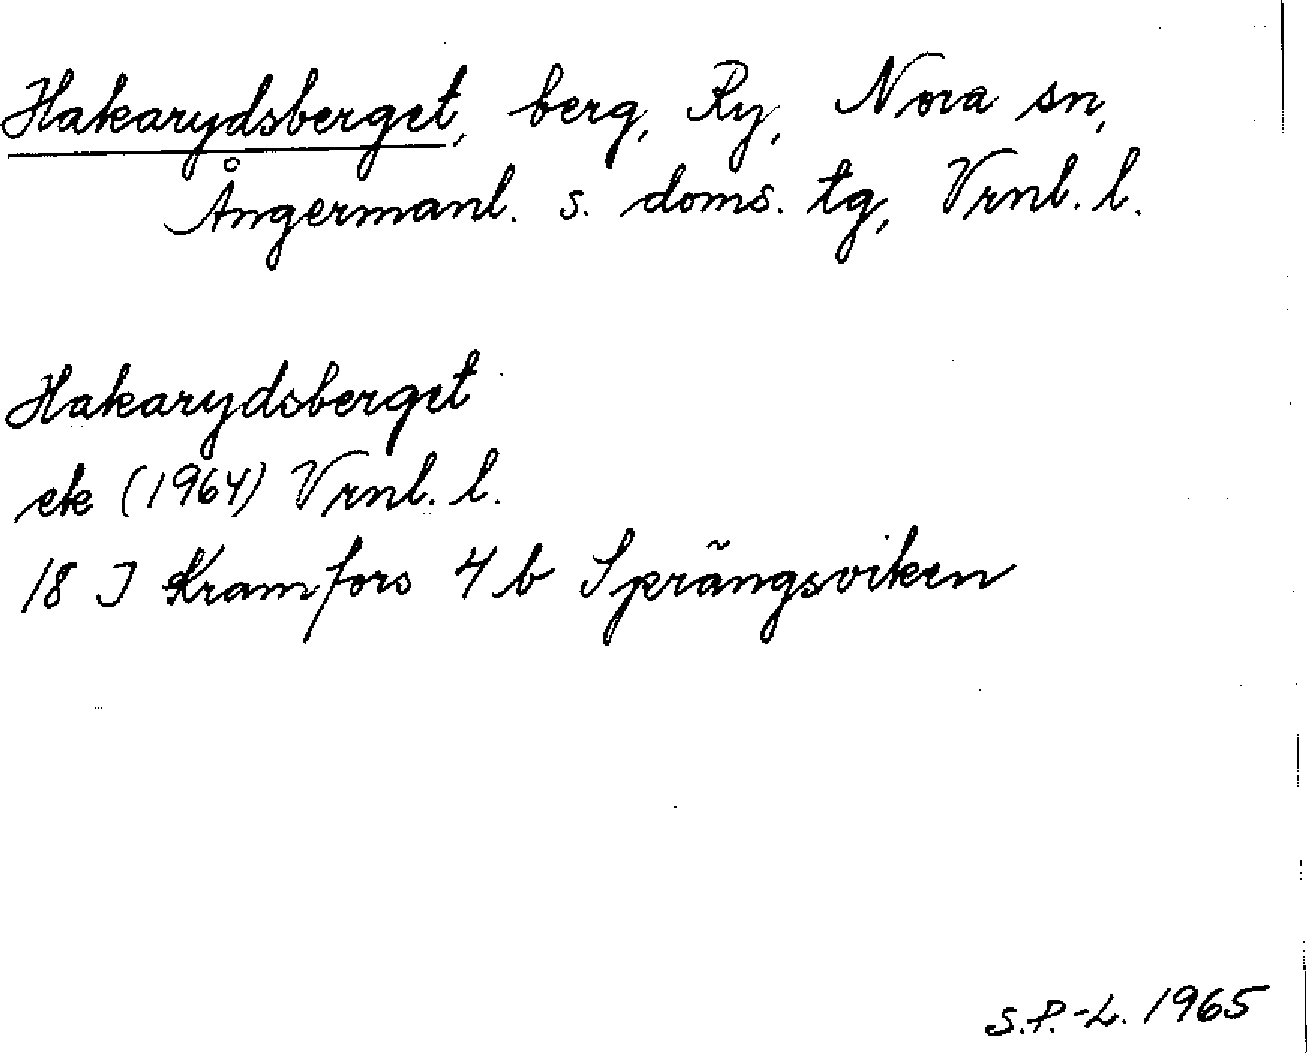 Hakarydsberget, berg, Ry, Nora sn,
Ångermanl. s. doms. tg, Vrnl. l.
Hakarydsberget
ek (1964) Vrnl. l.
18 I Kramfors 4 b Sprängsviken
S.P.-L. 1965